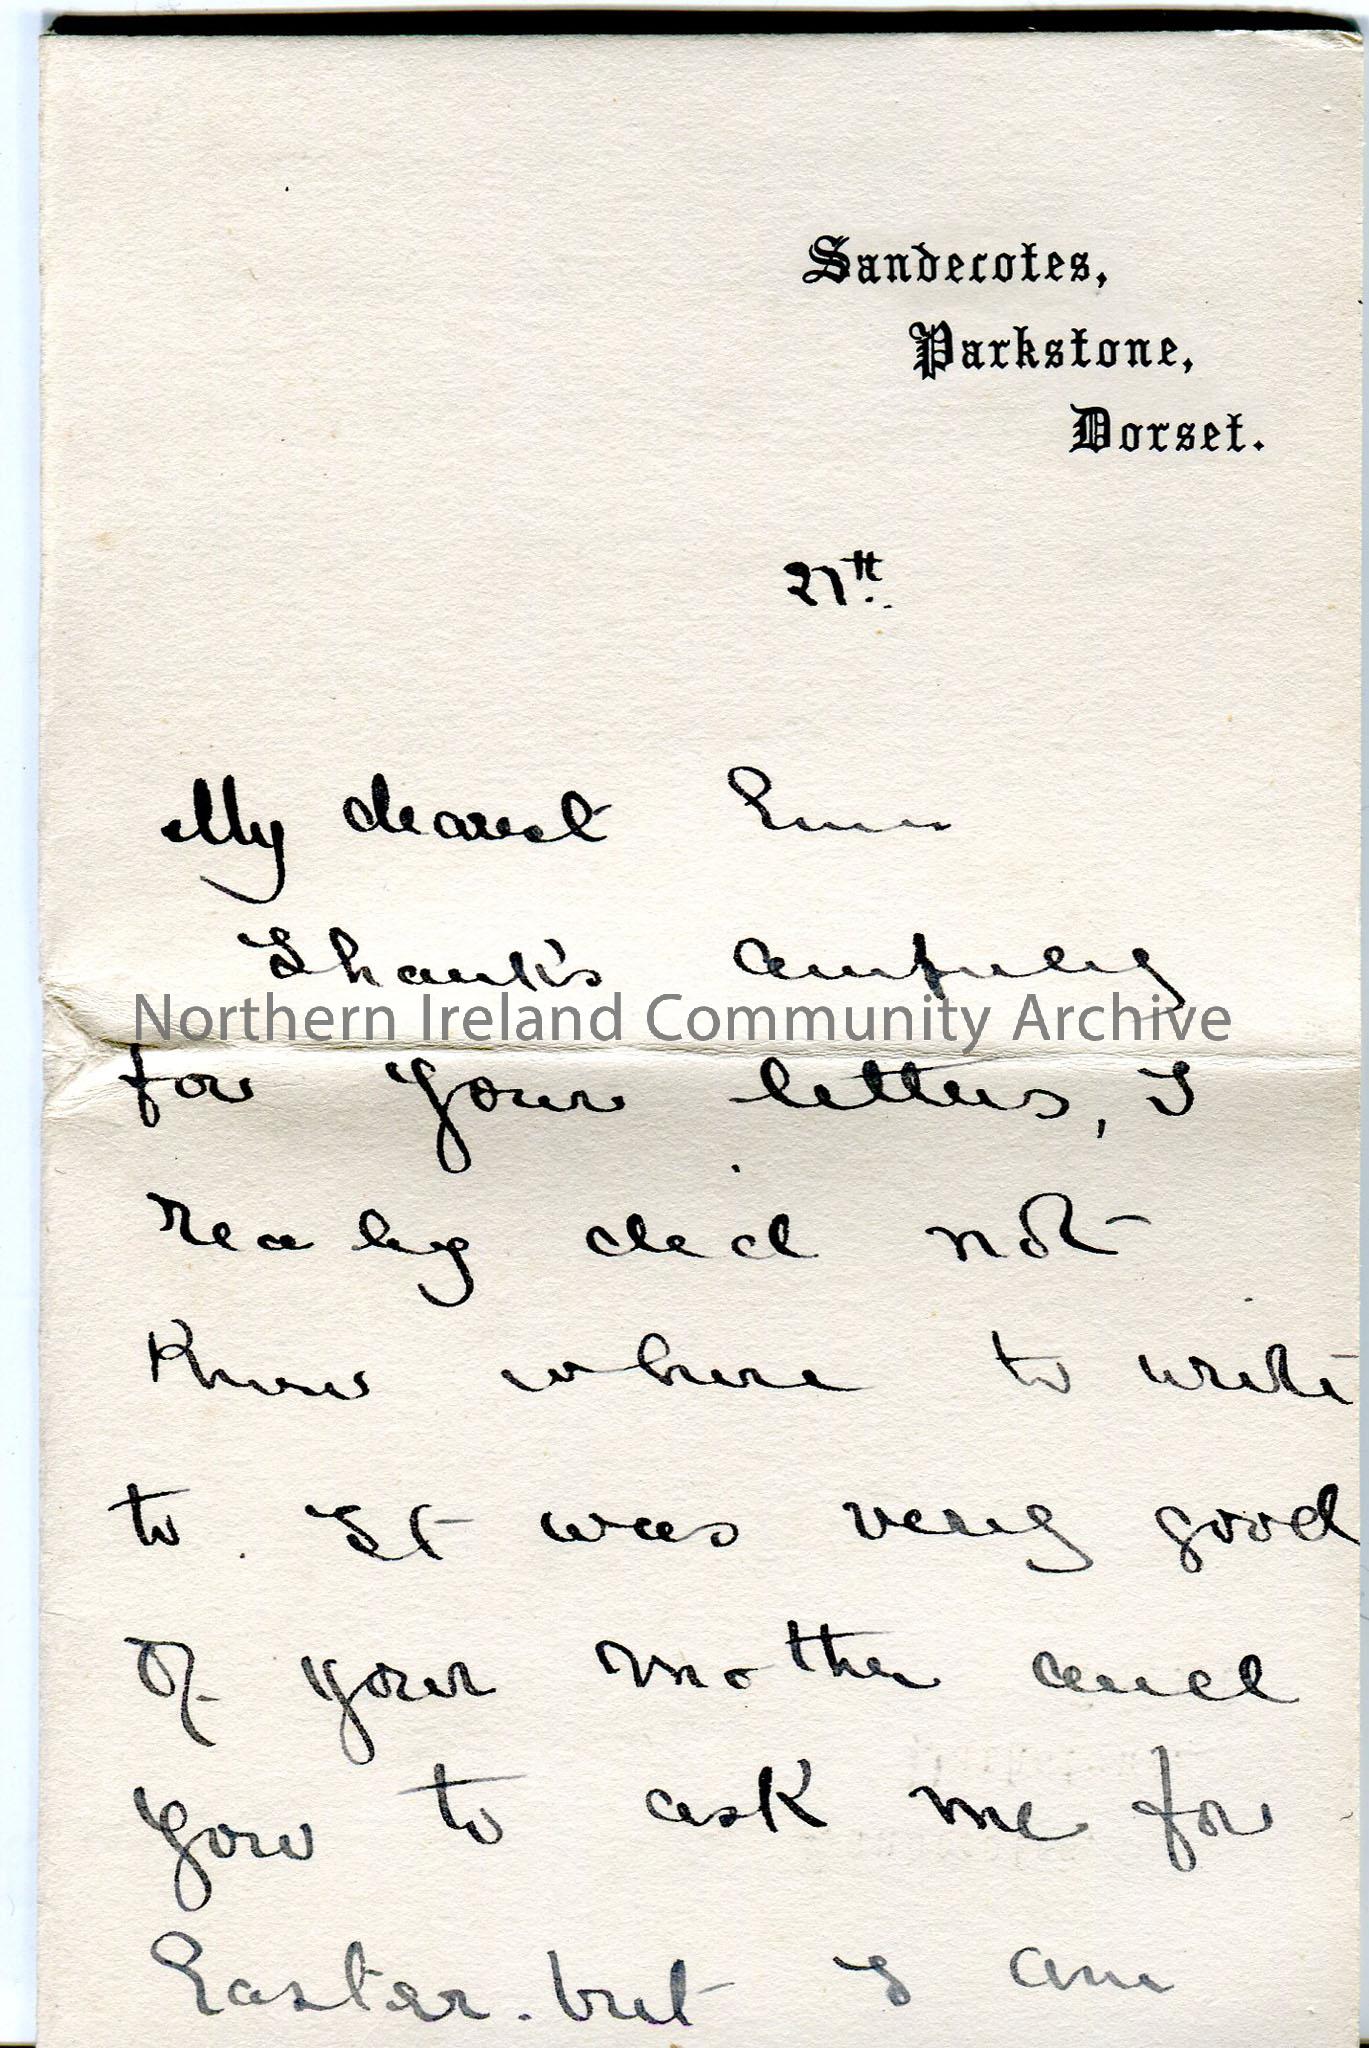 Sandecotes,
Parkstone,
Dorset.
27th.
My dearest
Thank's awfully
Northern Ireland Community Archive
for your letters, I
really did not
know where to write
to. It was very good
of your mother and
you to ask me for
Easter. but I am